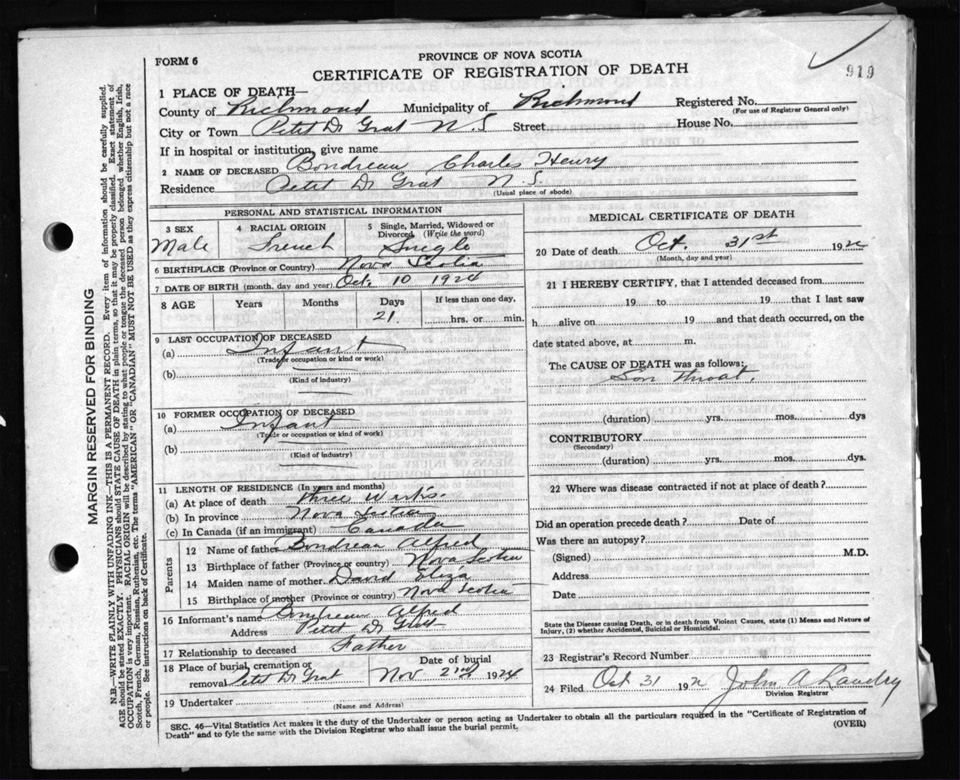 FORM 6
PROVINCE OF NOVA SCOTIA
CERTIFICATE OF REGISTRATION OF DEATH
919
1 PLACE OF DEATH—
County of Richmond Municipality of Richmond Registered No.
(For use of Registrar General only)
City or Town Petit D Grat N.S Street House No.
If in hospital or institution, give name
2 NAME OF DECEASED Bondreau Charles Henry
Residence Petit D Grat N.S.
(Usual place of abode)
PERSONAL AND STATISTICAL INFORMATION
3 SEX 4 RACIAL ORIGIN 5 Single, Married, Widowed or Divorced. (Write the word)
Male French Single
6 BIRTHPLACE (Province or Country) Nova Scotia
7 DATE OF BIRTH (month, day and year) Oct. 10 1924
8 AGE Years Months Days If less than one day,
21. hrs. or min.
9 LAST OCCUPATION OF DECEASED
(a) Infant
(Trade or occupation or kind or work)
(b)
(Kind of industry)
10 FORMER OCCUPATION OF DECEASED
(a) Infant
(Trade or occupation or kind of work)
(b)
(Kind of industry)
11 LENGTH OF RESIDENCE (In years and months)
(a) At place of death Three
(b) In province Nova Scotia
(c) In Canada (if an immigrant) Canada
Parents
12 Name of father Bondreau Alfred
13 Birthplace of father (Province or country) Nova Scotia
14 Maiden name of mother David Eliza
15 Birthplace of mother (Province or country) Nova Scotia
16 Informant's name Bondreau Alfred
Address Petit D Grat
17 Relationship to deceased Father
18 Place of burial, cremation or removal Petit D Grat
Date of burial Nov 2nd 1924
19 Undertaker
(Name and Address)
MEDICAL CERTIFICATE OF DEATH
20 Date of death Oct. 31st 192
(Month, day and year)
21 I HEREBY CERTIFY, that I attended deceased from
19 to 19 that I last saw
h alive on 19 and that death occurred, on the
date stated above, at m.
The CAUSE OF DEATH was as follows:
Sore Throat.
(duration) yrs. mos. dys
CONTRIBUTORY
(Secondary)
(duration) yrs. mos. dys.
22 Where was disease contracted if not at place of death?
Did an operation precede death? Date of
Was there an autopsy?
(Signed) M.D.
Address
Date
State the Disease causing Death, or in death from Violent Causes, state (1) Means and Nature of
Injury, (2) whether Accidental, Suicidal or Homicidal.
23 Registrar's Record Number
24 Filed Oct 31 192 John A Landry
Division Registrar
SEC. 46—Vital Statistics Act makes it the duty of the Undertaker or person acting as Undertaker to obtain all the particulars required in the "Certificate of Registration of
Death" and to fyle the same with the Division Registrar who shall issue the burial permit. (OVER)
MARGIN RESERVED FOR BINDING
N.B.—WRITE PLAINLY WITH UNFADING INK—THIS IS A PERMANENT RECORD. Every item of information should be carefully supplied.
AGE should be stated EXACTLY. PHYSICIANS should STATE CAUSE OF DEATH in plain terms, so that it may be properly classified. Exact statement of
OCCUPATION is very important. RACIAL ORIGIN will be described by stating to what people or tongue the deceased person belonged whether English, Irish,
Scotch, French, German, Russian, Ruthenian, etc. The terms "AMERICAN" OR "CANADIAN" MUST NOT BE USED as they express citizenship but not a race
or people. See instructions on back of Certificate.